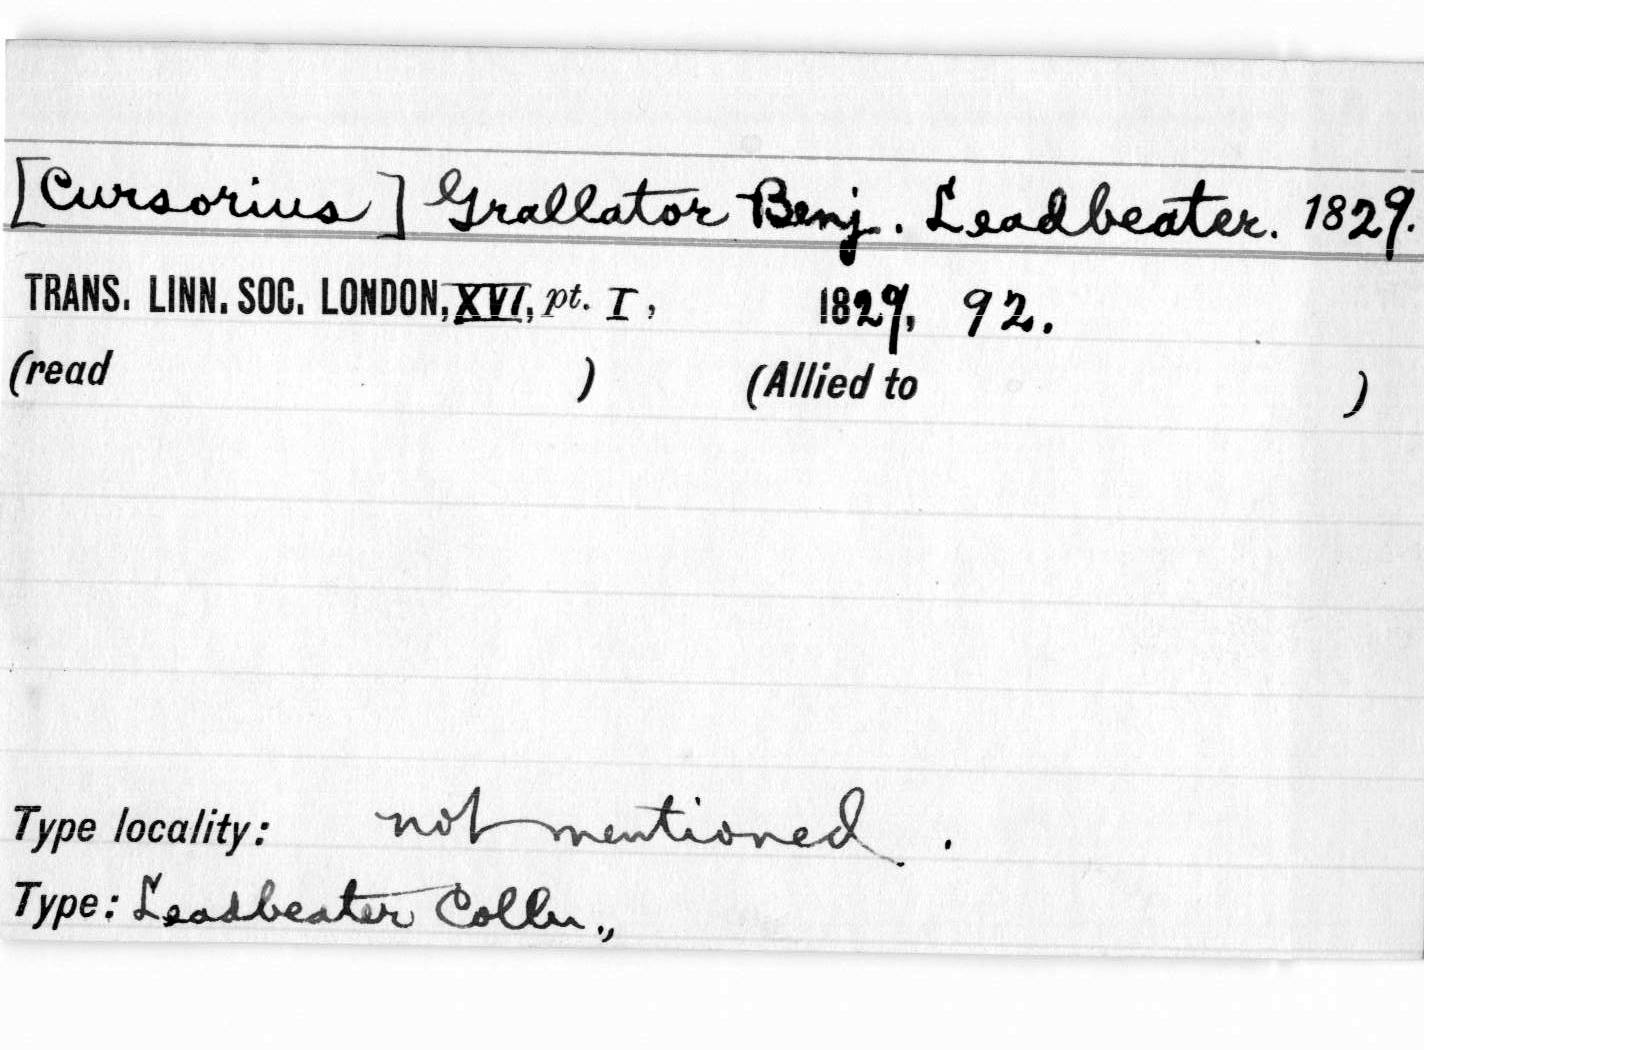 [Cursorius] Grallator Benj. Leadbeater. 1829.
TRANS. LINN. SOC. LONDON, XVI, pt. I, 1829, 92.
(read ) (Allied to )
Type locality: not mentioned.
Type: Leadbeater Colln.,